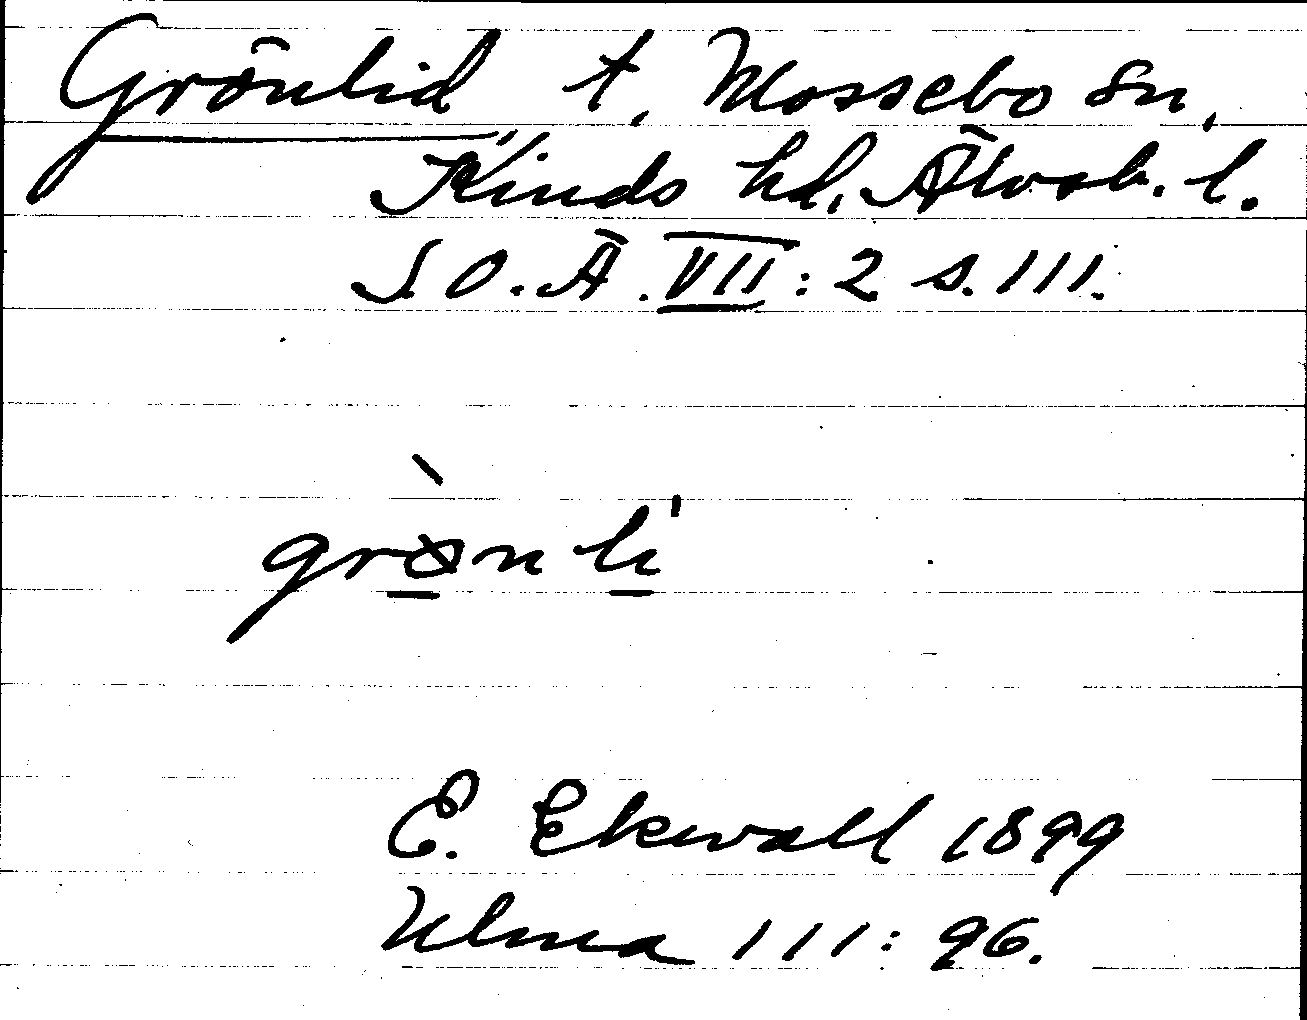 Grönlid t, Mossebo sn,
Kinds hd, Älvsb. l.
S O. Ä. VII: 2 s. 111.
grø̀nli
E. Ekwall 1899
Ulma 111: 96.